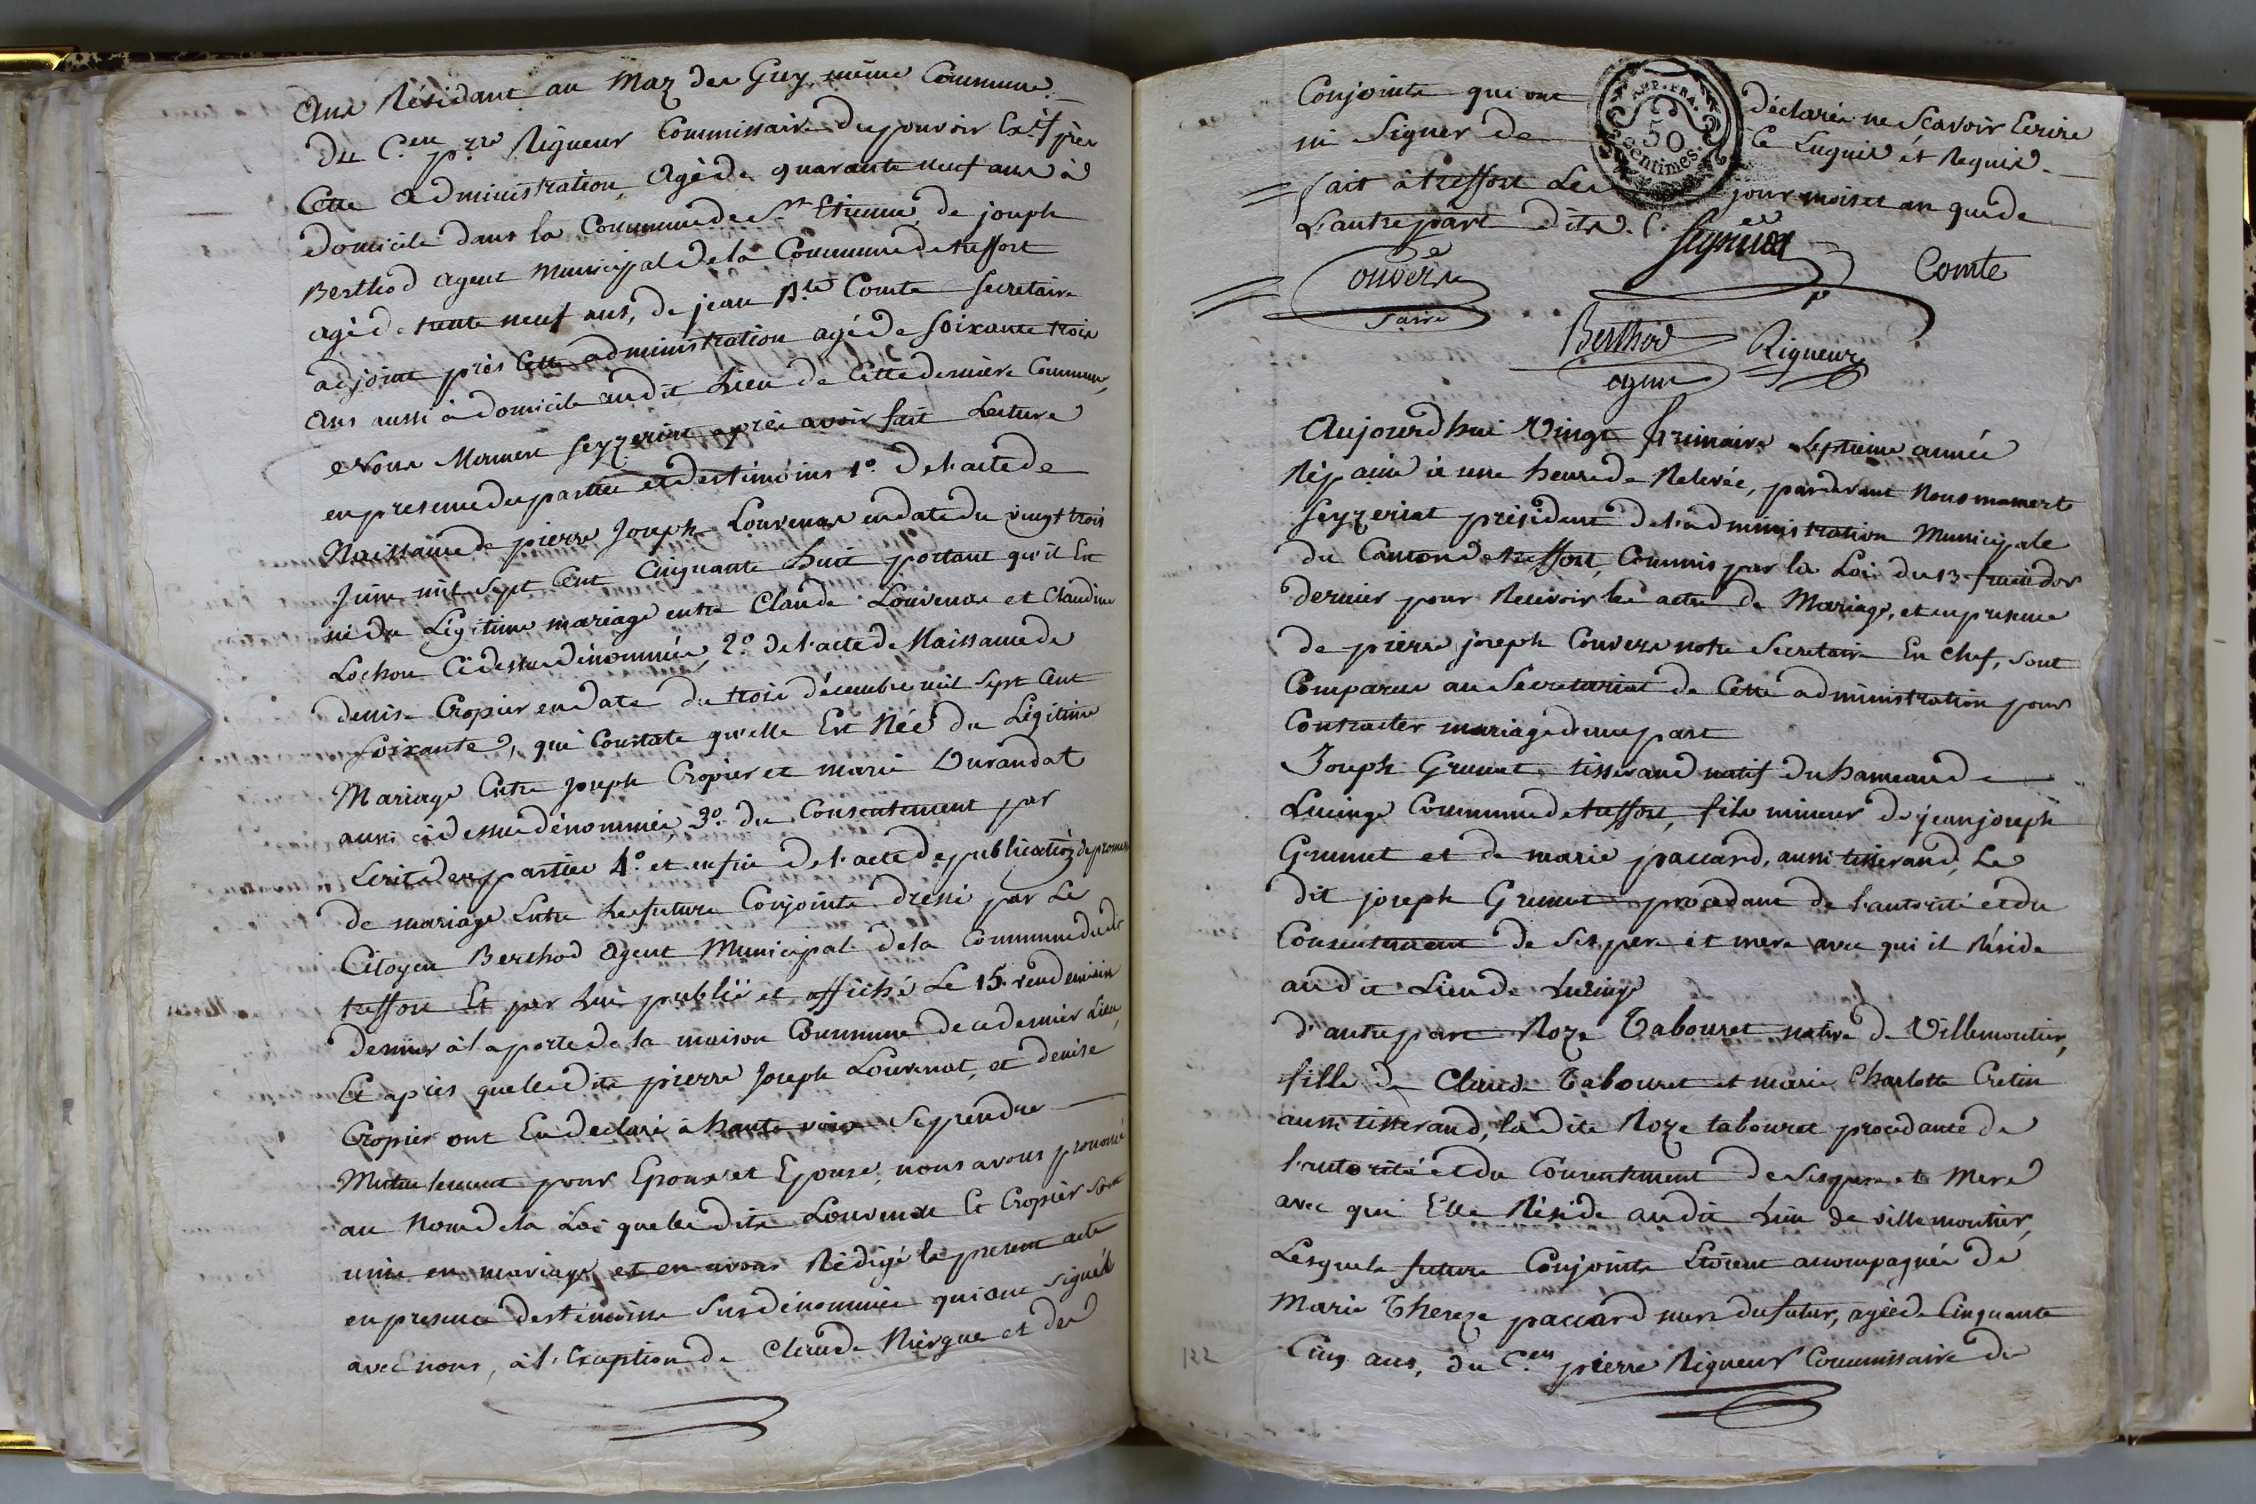 ans Résidant au Maz des Guy, même Commune
du C.en p.rre Rigueur Commissaire du pouvoir Ex.if près
Cette administration, agé de quarante neuf ans à
domicile dans la Commune de S.t Etienne, de joseph
Berthod agent Municipal de la Commune de treffort
agé de trente neuf ans, de jean B.te Comte Secretaire
adjoint près Cette administration agé de soixante trois
ans aussi à domicile audit Lieu de Cette derniere Commune,
Nous Mamert Seyzeriat après avoir fait Lecture
en presence des parties et des témoins 1.º de l'acte de
Naissance de pierre Joseph Louvenat en date du vingt trois
Juin mil Sept Cent Cinquante huit portant qu'il Est
né du Légitime mariage entre Claude Louvenat et Claudine
Lochon Ci dessus dénommés, 2.º de l'acte de Naissance de
denise Cropier en date du trois décembre mil Sept Cent
soixante, qui Constate qu'elle Est Née du Légitime
Mariage Entre Joseph Cropier et marie Durandat
aussi ci dessus dénommés, 3.º du Consentement par
Ecrit des parties 4.º et enfin de l'acte de publication de promesse
de mariage Entre les futurs Conjoints dressé par Le
Citoyen Berthod agent Municipal de la Commune dudit
treffort Et par lui publié et affiché Le 15 vendemiaire
dernier à la porte de la maison Commune de ce dernier Lieu,
Et après que lesdits pierre Joseph Louvenat, et denise
Cropier ont Eu declaré à haute voix Se prendre
Mutuelement pour Epoux et Epouse, nous avons prononcé
au Nom de la Loi que lesdits Louvenat Et Cropier sont
unis en mariage, et en avons Rédigé le present acte
en presence des témoins Susdénommés qui ont signés
avec nous, à l'Exception de Claude Niergue et des
Conjoints qui ont déclarés ne Sçavoir Ecrire
ni Signer de Ce Enquis et Requis.
REP. FRA.
50
centimes.
fait à treffort Les jour mois et an que de
L'autre part dits. /.
Seyzeriat
Comte
Couvers
Berthod
agent
Rigueur
Aujourdhui Vingt frimaire Septieme année
Rép.caine à une heure de Relevée, pardevant Nous mamert
Seyzeriat président de l'administration Municipale
du Canton de treffort, Commis par la Loi du 13 fructidor
dernier pour Recevoir les actes de Mariage, et en presence
de pierre joseph Couvers notre Secretaire En chef, sont
Comparus au Secretariat de Cette administration pour
Contracter mariage d'une part
Joseph Grumet, tisserand natif du hameau de
Lucinge Commune de treffort, fils mineur de jean joseph
Grumet et de marie paccard, aussi tisserand, Le
dit joseph Grumet procedant de l'autorité et du
Consentement de Ses pere et mere avec qui il Réside
audit Lieu de Lucinge
d'autre part Roze Tabouret native de Villemoutier,
fille de Claude Tabouret et marie Charlotte Cretin
aussi tisserand, ladite Roze tabouret procedante de
l'autorité et du Consentement de Ses pere et Mere
avec qui Elle Réside audit Lieu de villemoutier,
Lesquels futurs Conjoints Etoient accompagnés de
Marie Thereze paccard mere du futur, agée de Cinquante
Cinq ans, du C.en pierre Rigueur Commissaire du
122